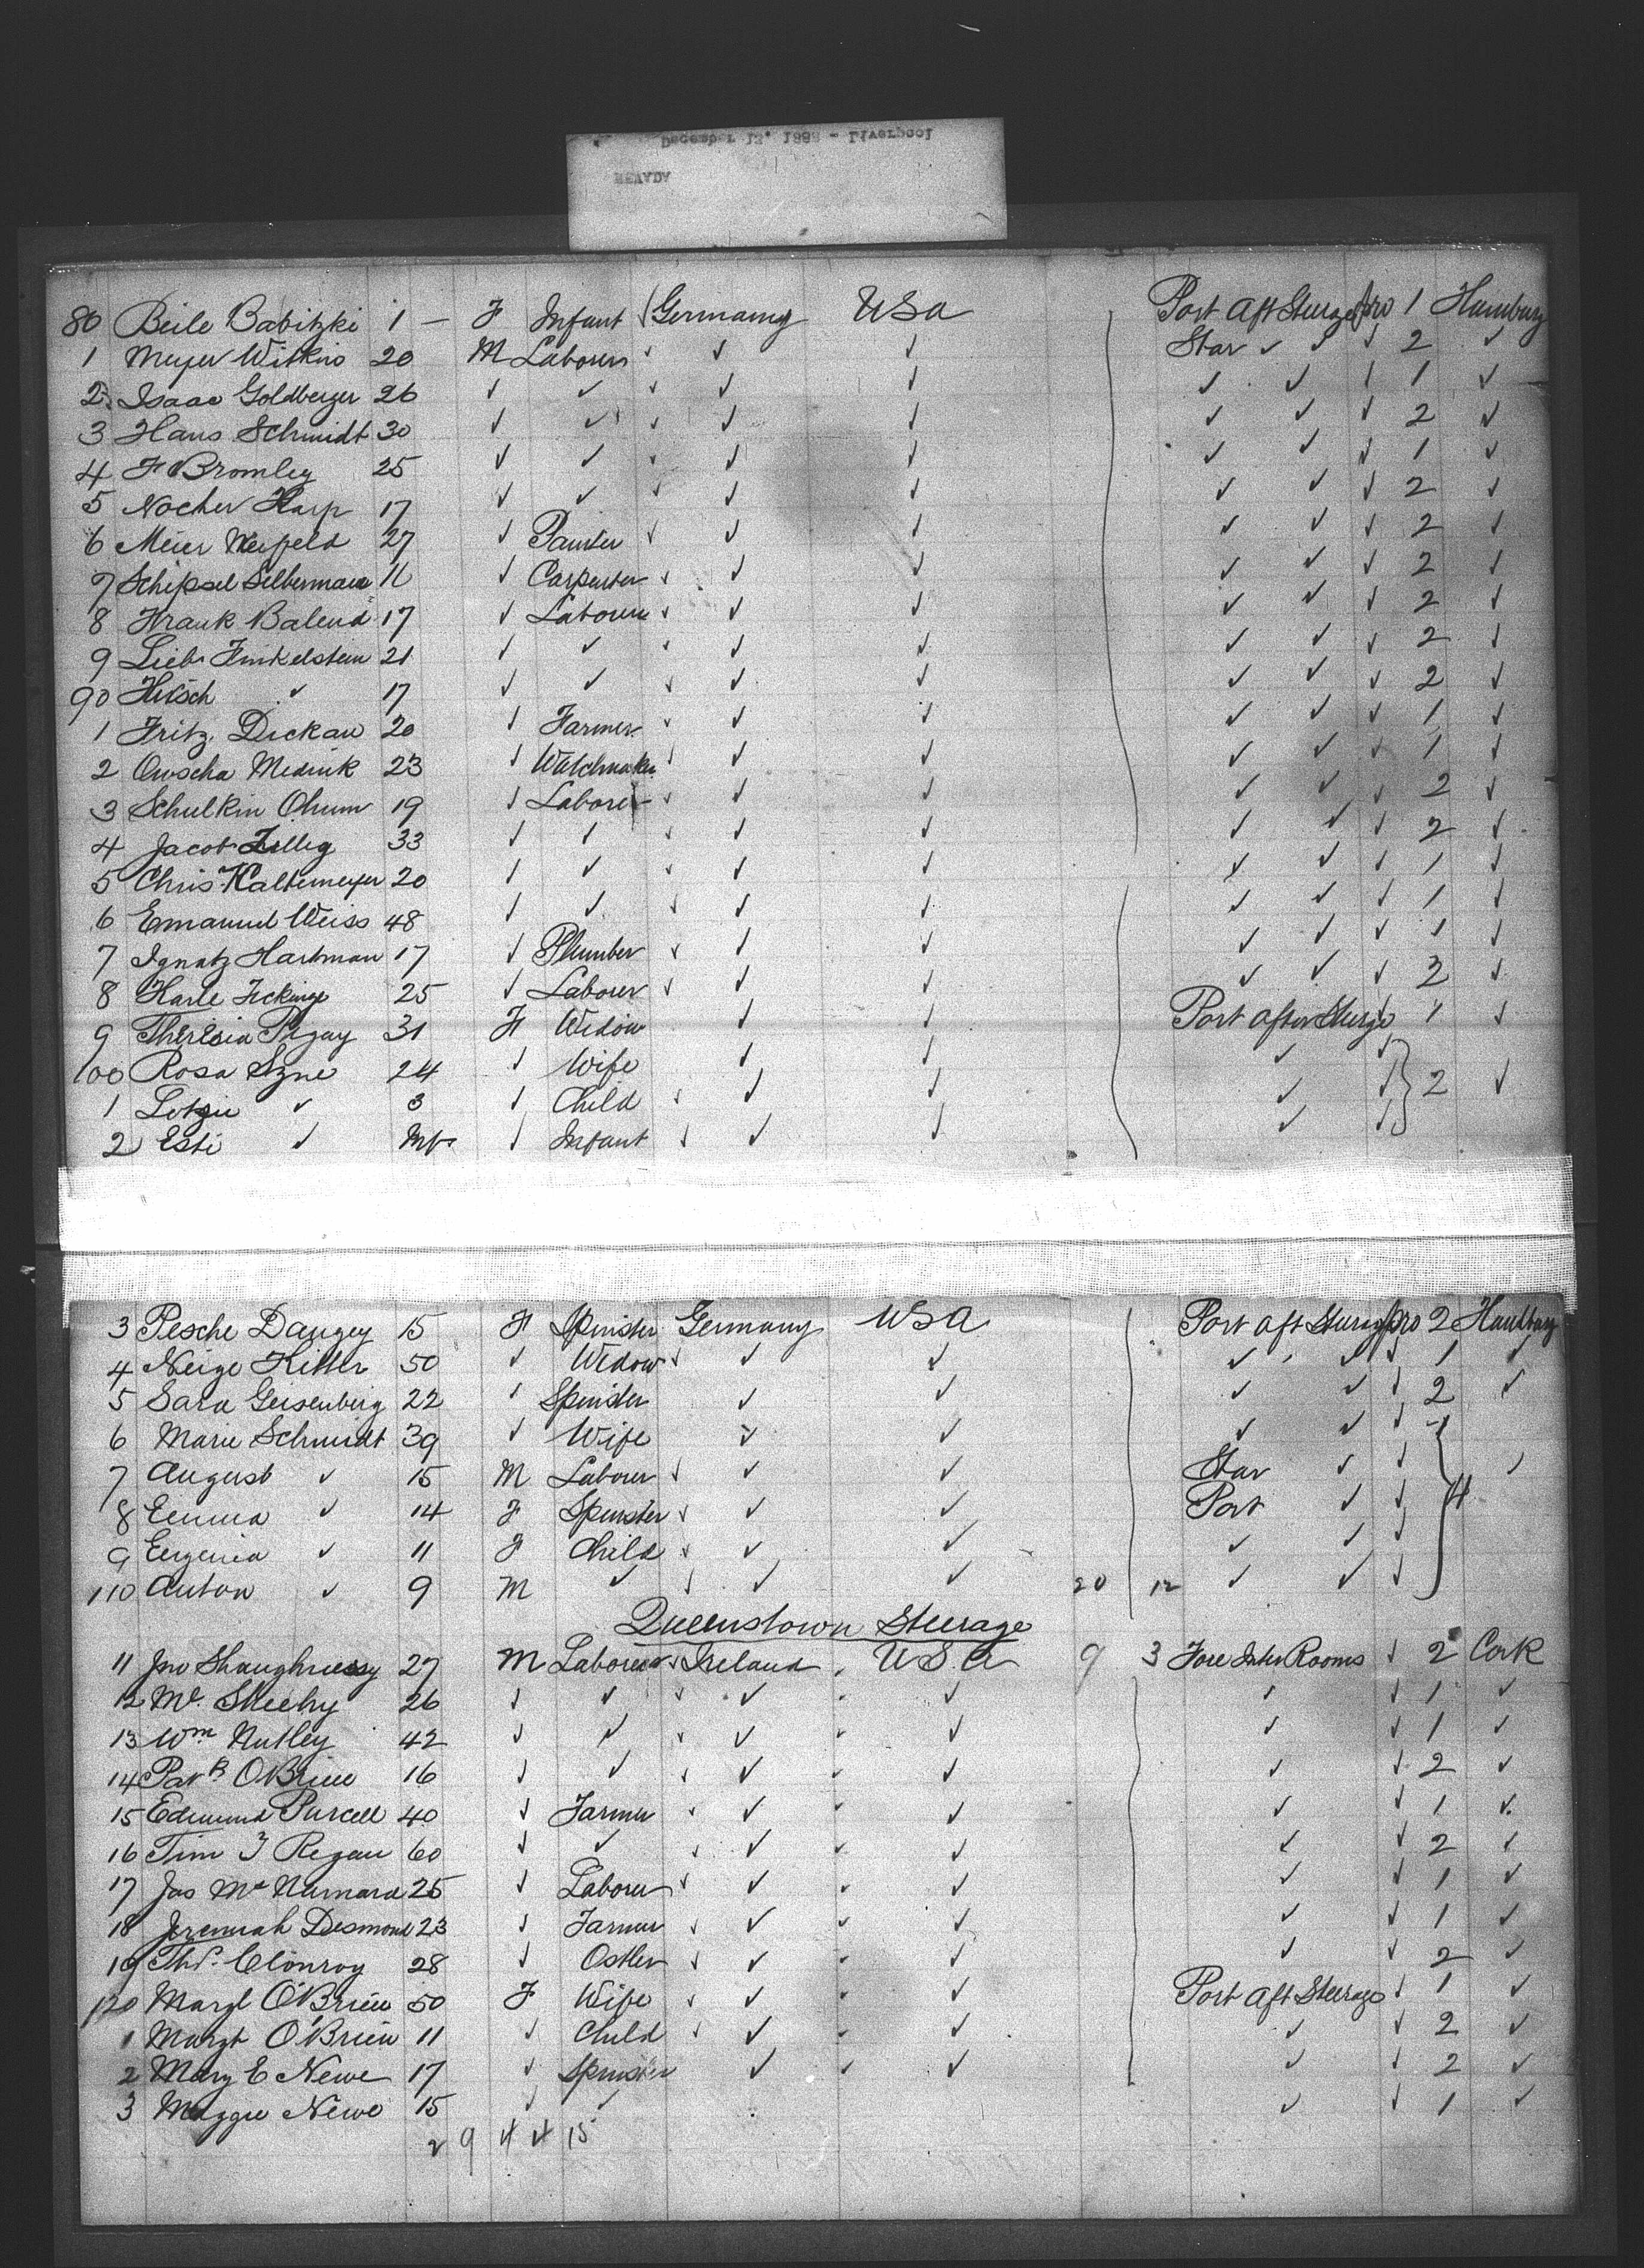 December 12. 1888 - Liverpool
80 Beile Babitzki 1 — F Infant Germany USa Port Aft Steerage pro 1 Hamburg
1 Meyer Witkins 20 M Laborer ✓ ✓ ✓ Star ✓ ✓ ✓ 2 ✓
2 Isaac Goldberger 26 ✓ ✓ ✓ ✓ ✓ ✓ ✓ ✓ 1 ✓
3 Hans Schmidt 30 ✓ ✓ ✓ ✓ ✓ ✓ ✓ ✓ 2 ✓
4 F Bromley 25 ✓ ✓ ✓ ✓ ✓ ✓ ✓ ✓ 1 ✓
5 Nocher Harp 17 ✓ ✓ ✓ ✓ ✓ ✓ ✓ ✓ 2 ✓
6 Meier 27 ✓ Painter ✓ ✓ ✓ ✓ ✓ ✓ 2 ✓
7 Schepsel Silbermann 11 ✓ Carpenter ✓ ✓ ✓ ✓ ✓ ✓ 2 ✓
8 Frank Balend 17 ✓ Laborer ✓ ✓ ✓ ✓ ✓ ✓ 2 ✓
9 Lieb Finkelstein 21 ✓ ✓ ✓ ✓ ✓ ✓ ✓ ✓ 2 ✓
90 Hirsch ✓ 17 ✓ ✓ ✓ ✓ ✓ ✓ ✓ ✓ 2 ✓
1 Fritz Dickau 20 ✓ Farmer ✓ ✓ ✓ ✓ ✓ ✓ 1 ✓
2 Owscha Mednik 23 ✓ Watchmaker ✓ ✓ ✓ ✓ ✓ ✓ 1 ✓
3 Schulkin Chum 19 ✓ Laborer ✓ ✓ ✓ ✓ ✓ ✓ 2 ✓
4 Jacob Zillig 33 ✓ ✓ ✓ ✓ ✓ ✓ ✓ ✓ 2 ✓
5 Chris Kaltemeyer 20 ✓ ✓ ✓ ✓ ✓ ✓ ✓ ✓ 1 ✓
6 Emanuel Weiss 48 ✓ ✓ ✓ ✓ ✓ ✓ ✓ ✓ 1 ✓
7 Ignatz Hartman 17 ✓ Plumber ✓ ✓ ✓ ✓ ✓ ✓ 1 ✓
8 Karle 25 ✓ Laborer ✓ ✓ ✓ ✓ ✓ ✓ 2 ✓
9 Theresia 31 F Widow ✓ ✓ Port after Steerge 1 ✓
100 Rosa Szne 24 ✓ Wife ✓ ✓ ✓ ✓
1 Lotzie ✓ 3 ✓ Child ✓ ✓ ✓ ✓ ✓ 2 ✓
2 Esti ✓ Inft ✓ Infant ✓ ✓ ✓ ✓ ✓
3 Pesche Dangey 15 F Spinster Germany USA Port aft Steerage pro 2 Hamburg
4 Neige Kitter 50 ✓ Widow ✓ ✓ ✓ ✓ ✓ ✓ 1 ✓
5 Sara Geisenberg 22 ✓ Spinster ✓ ✓ ✓ ✓ ✓ 2 ✓
6 Marie Schmidt 39 ✓ Wife ✓ ✓ ✓ ✓ ✓
7 August ✓ 15 M Laborer ✓ ✓ ✓ Star ✓ ✓ ✓
8 Emma ✓ 14 F Spinster ✓ ✓ ✓ Port ✓ ✓ 4
9 Eugenia ✓ 11 F Child ✓ ✓ ✓ ✓ ✓ ✓
110 Anton ✓ 9 M ✓ ✓ ✓ ✓ 20 12 ✓ ✓ ✓
Queenstown Steerage
11 Jno Shaughnessy 27 M Laborer ✓ Ireland U.S.A 9 3 Fore Inter Rooms ✓ 2 Cork
12 Ml. Sheehy 26 ✓ ✓ ✓ ✓ ✓ ✓ ✓ 1 ✓
13 Wm Nutley 42 ✓ ✓ ✓ ✓ ✓ ✓ ✓ 1 ✓
14 Patk OBrien 16 ✓ ✓ ✓ ✓ ✓ ✓ ✓ 2 ✓
15 Edmund Purcell 40 ✓ Farmer ✓ ✓ ✓ ✓ ✓ 1 ✓
16 Tim J Regan 60 ✓ ✓ ✓ ✓ ✓ ✓ ✓ 2 ✓
17 Jas McNamara 25 ✓ Laborer ✓ ✓ ✓ ✓ ✓ 1 ✓
18 Jeremiah Desmond 23 ✓ Farmer ✓ ✓ ✓ ✓ ✓ 1 ✓
19 Ths. Conroy 28 ✓ Ostler ✓ ✓ ✓ ✓ ✓ 2 ✓
120 Margt O'Brien 50 F Wife ✓ ✓ ✓ Port Aft Steerage ✓ 1 ✓
1 Margt O'Brien 11 ✓ Child ✓ ✓ ✓ ✓ ✓ 2 ✓
2 Mary E Newe 17 ✓ Spinster ✓ ✓ ✓ ✓ 2 ✓
3 Maggie Newe 15 ✓ ✓ ✓ ✓ 1 ✓
2 9 4 4 15